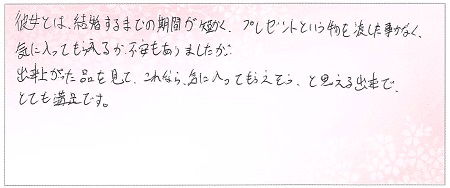 彼女とは、結婚するまでの期間が短く、プレゼントという物を渡した事がなく、
気に入ってもらえるか不安もありましたが、
出来上がった品を見て、これなら、気に入ってもらえそう、と思える出来で、
とても満足です。